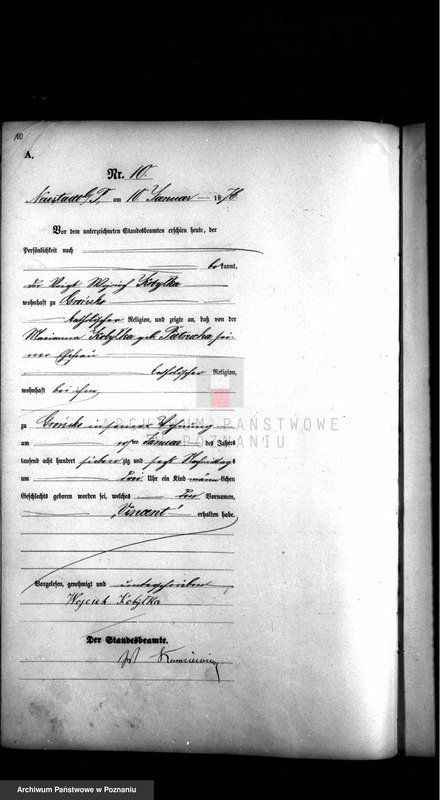 10
A.
Nr. 10.
Neustadt am 10 Januar 1876.
Vor dem unterzeichneten Standesbeamten erschien heute, der
Persönlichkeit nach
bekannt,
der Voigt Wojciech Kobyłka
wohnhaft zu
katholischer Religion, und zeigte an, daß von der
Marianna Kobyłka geb. sei
ner Ehefrau
katholischer Religion,
wohnhaft bei ihm,
ARCHIWUM PAŃSTWOWE
W POZNANIU
zu in seiner Wohnung
am ten Januar des Jahres
tausend acht hundert siebenzig und sechs Nachmittags
um drei Uhr ein Kind männlichen
Geschlechts geboren worden sei, welches den Vornamen,
"Vincent" erhalten habe.
Vorgelesen, genehmigt und unterschrieben
Wojciech Kobyłka
Der Standesbeamte.
Archiwum Państwowe w Poznaniu